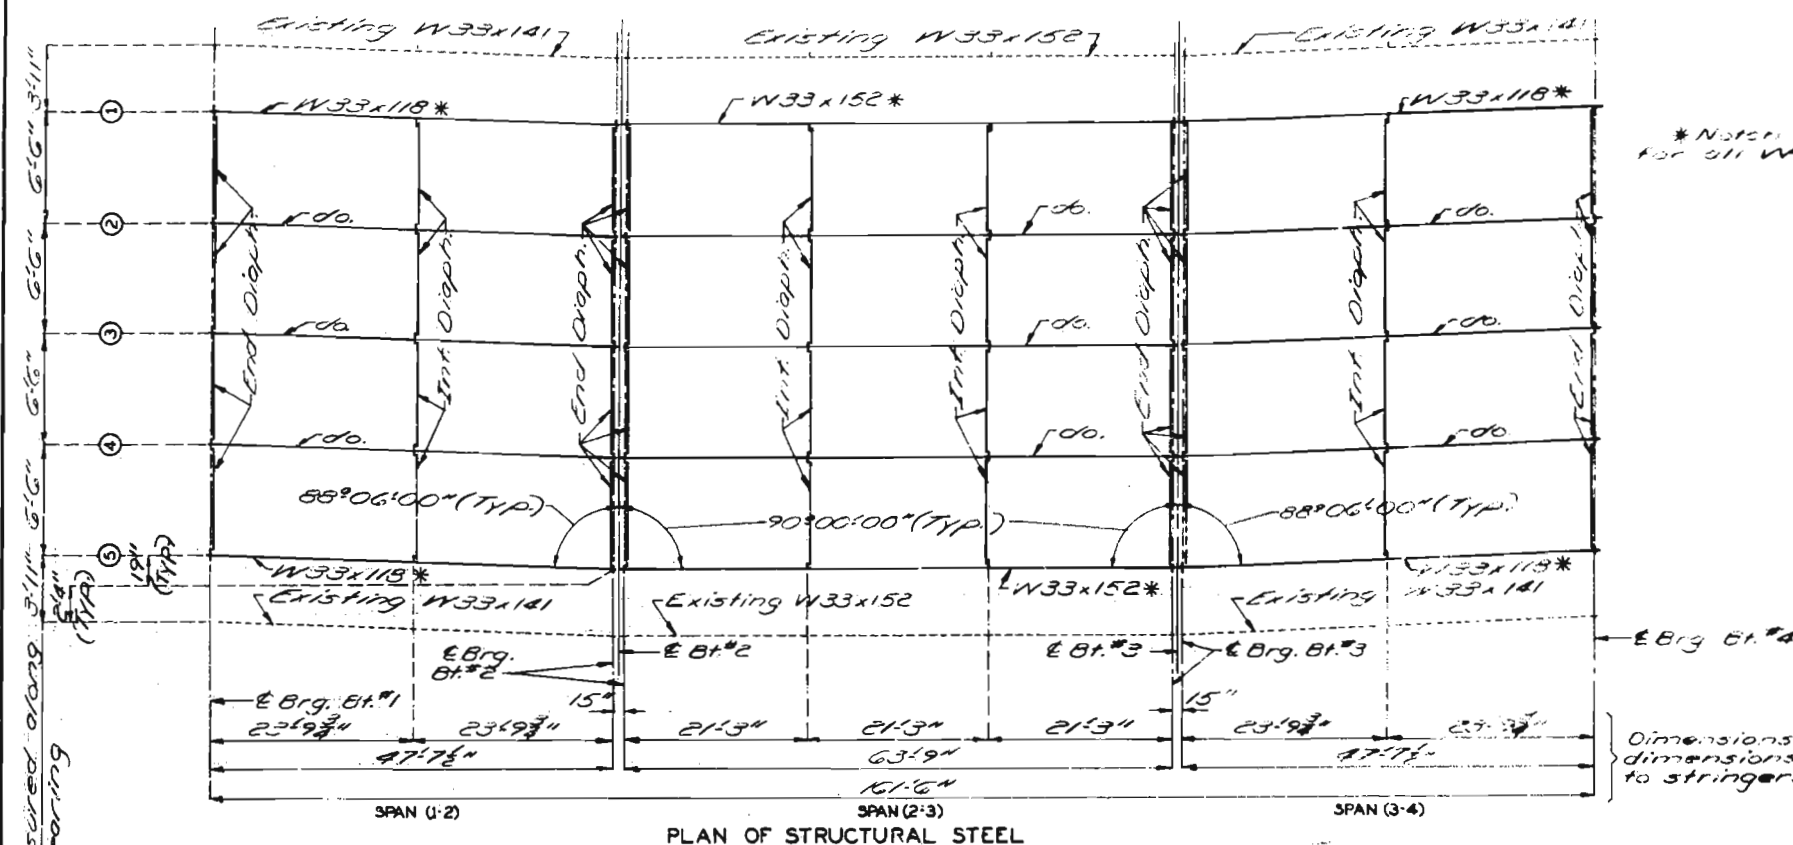 Existing W33x141
Existing W33x152
Existing W33x141
3'-11"
6'-6"
6'-6"
6'-6"
6'-6"
3'-11"
1
2
3
4
5
W33x118*
W33x152*
W33x118*
* Notch
for all W
do.
do.
do.
do.
do.
do.
do.
do.
do.
End Diaph.
Int. Diaph.
End Diaph.
Int. Diaph.
Int. Diaph.
End Diaph.
Int. Diaph.
End Diaph.
88°06'00" (Typ.)
90°00'00" (Typ.)
88°06'00" (Typ.)
19"
(Typ)
(Typ.)
W33x118*
Existing W33x141
Existing W33x152
W33x152*
W33x118*
Existing W33x141
℄ Brg.
Bt.#2
℄ Bt.#2
℄ Bt.#3
℄ Brg. Bt.#3
℄ Brg Bt.#4
℄ Brg. Bt.#1
15"
15"
23'-9¾"
23'-9¾"
21'-3"
21'-3"
21'-3"
23'-9¾"
23'-9¾"
47'-7½"
63'-9"
47'-7½"
161'-6"
Dimensions
dimensions
to stringer
sured along
earing
SPAN (1-2)
SPAN (2-3)
SPAN (3-4)
PLAN OF STRUCTURAL STEEL